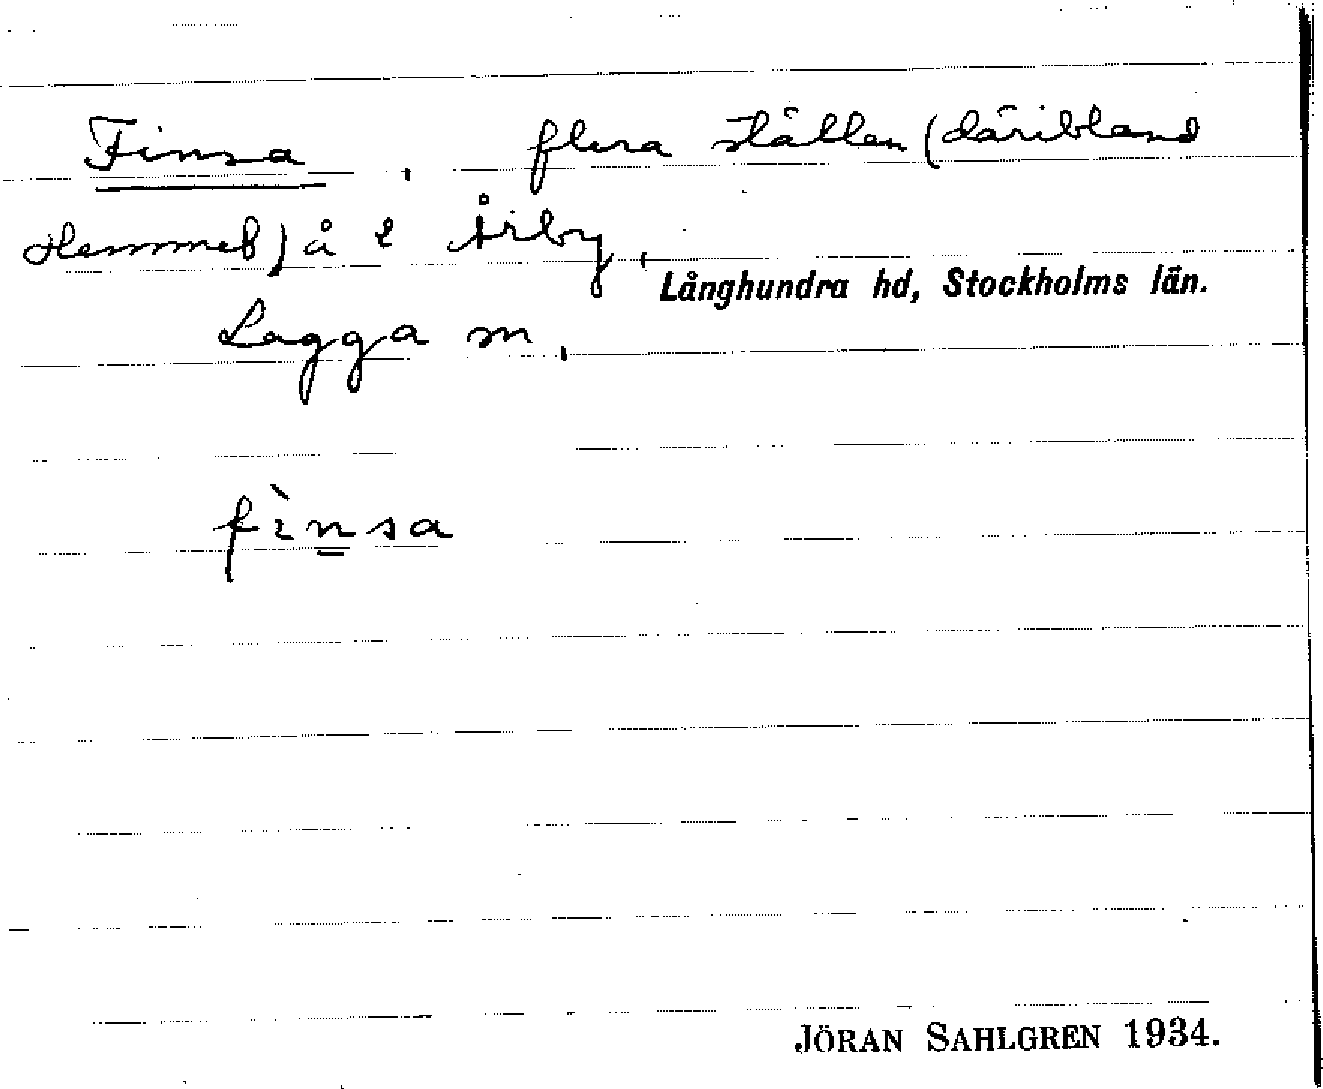 Finsa, flera ställen (däribland
Hemmet) å 2 Årby,
Långhundra hd, Stockholms län.
Lagga sn.
fìnsa
JÖRAN SAHLGREN 1934.